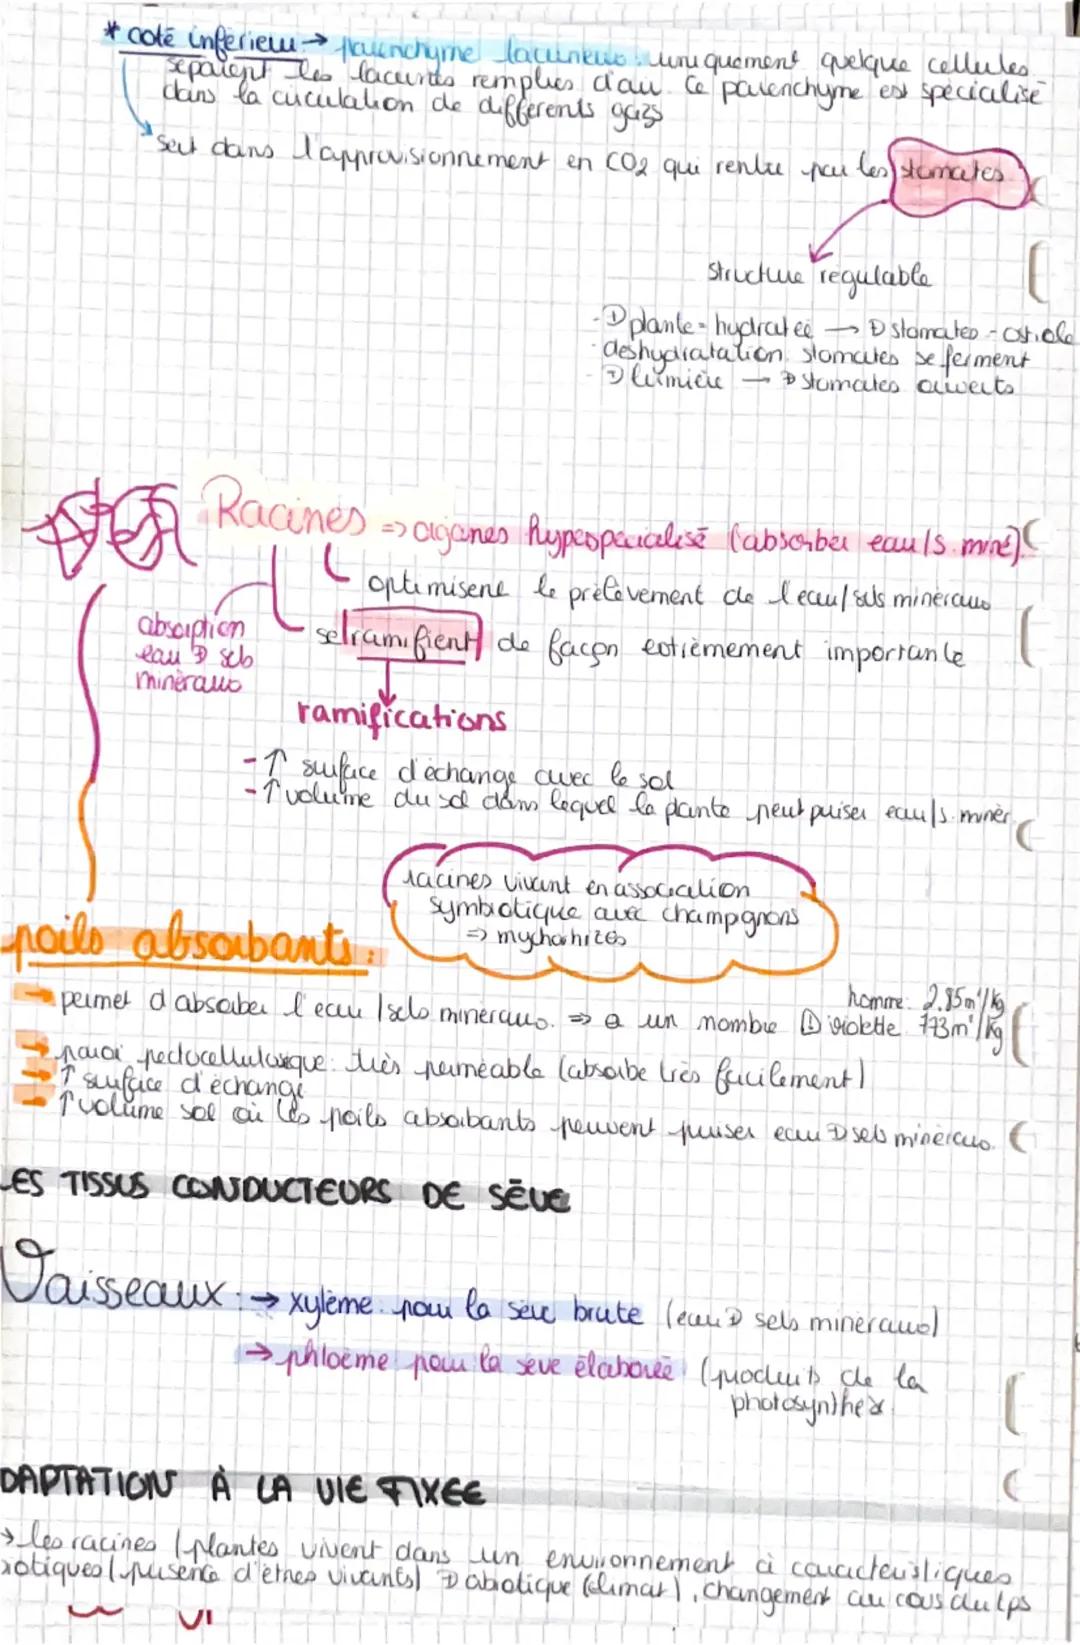 * coté inférieur → parenchyme lacuneux : uniquement quelque cellules
séparent les lacunes remplies d'air. Ce parenchyme est spécialisé
dans la circulation de différents gazs
sert dans l'approvisionnement en CO2 qui rentre par les stomates
structure régulable
- ⊕ plante = hydratée → ⊕ stomates - ostiole
- deshydratation stomates se ferment
- ⊕ lumière → ⊕ stomates ouverts
Racines => organes hyperspécialisé (absorber eau/s. miné).
optimisene le prélèvement de l'eau/sels minéraux
absorption
eau ⊕ sels
minéraux
se ramifient de façon extrèmement importante
ramifications
- ↑ surface d'échange avec le sol
- ↑ volume du sol dans lequel la plante peut puiser eau/s. minér
racines vivant en association
symbiotique avec champignons
=> mychorhizes
poils absorbants :
homme: 2,85m²/kg
→ permet d'absorber l'eau /sels minéraux. => a un nombre violette 773m²/kg
→ paroi pectocellulosique: très perméable (absorbe très facilement)
→ ↑ surface d'échange
→ ↑ volume sol où les poils absorbants peuvent puiser eau ⊕ sels minéraux.
LES TISSUS CONDUCTEURS DE SÈVE
Vaisseaux : → xylème pour la sève brute (eau ⊕ sels minéraux)
→ phloème pour la sève élaborée (produits de la
photosynthèse)
DAPTATION À LA VIE FIXÉE
→ les racines / plantes vivent dans un environnement à caractéristiques
biotiques (présence d'êtres vivants) ⊕ abiotique (climat), changement au cours du tps